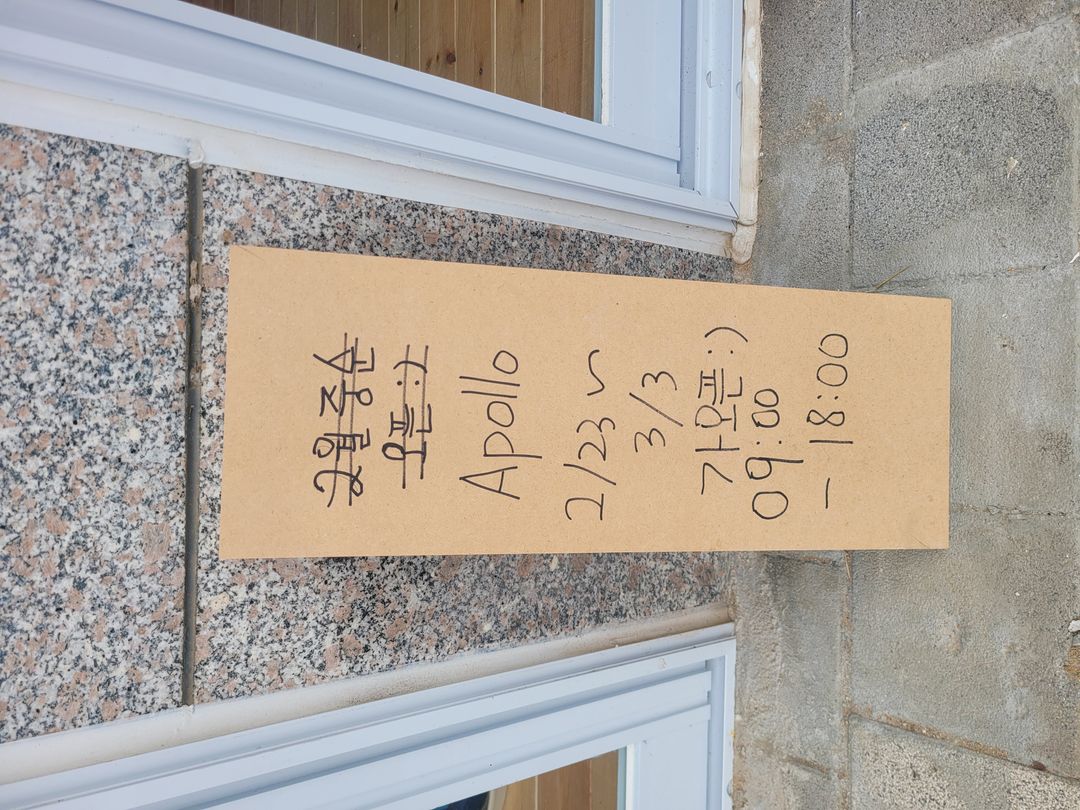 2월 중순
오픈 :)
Apollo
2/23 ~
3/3
가오픈 :)
09:00
- 18:00